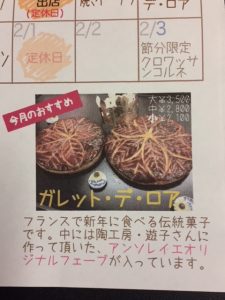 出店
(定休日)
デ・ロア
2/1
2/2
2/3
定休日
節分限定
クロワッサ
ンコルネ
今月のおすすめ
大¥3,500
中¥2,800
小¥2,100
ガレット・デ・ロア
フランスで新年に食べる伝統菓子
です。中には陶工房・遊子さんに
作って頂いた、アンソレイエオリ
ジナルフェーブが入っています。